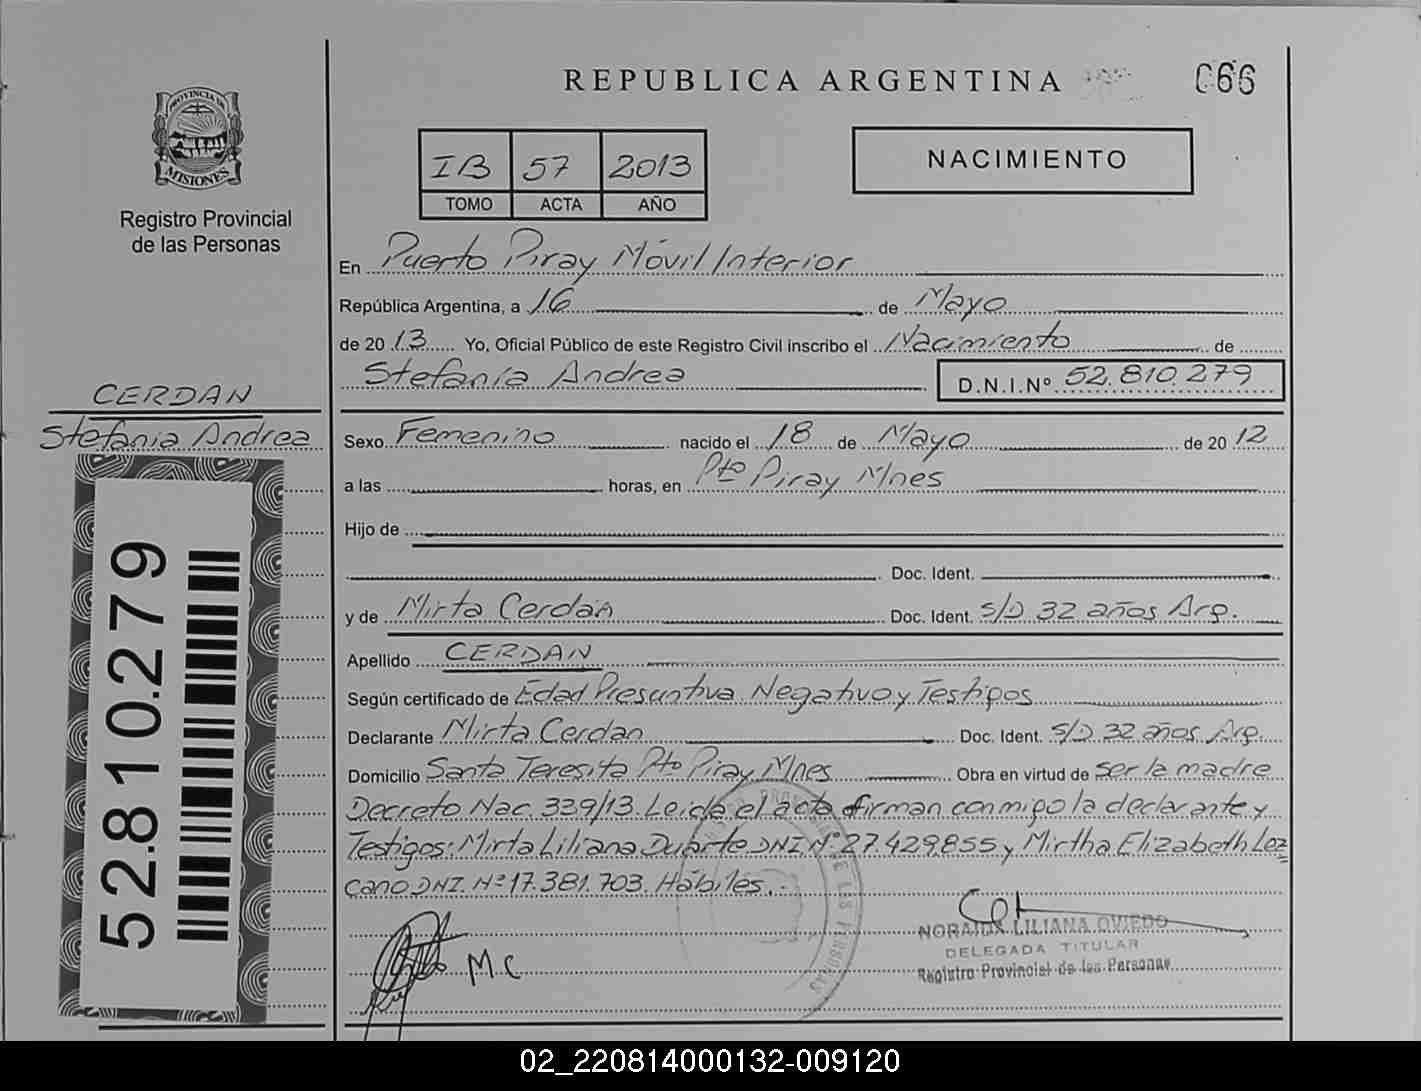 REPUBLICA ARGENTINA
066
PROVINCIA DE
MISIONES
Registro Provincial
de las Personas
IB 57 2013
TOMO ACTA AÑO
NACIMIENTO
En Puerto Piray Móvil Interior
República Argentina, a 16 de Mayo
de 2013 Yo, Oficial Público de este Registro Civil inscribo el Nacimiento de
Stefanía Andrea D.N.I.Nº 52.810.279
CERDAN
Stefania Andrea
Sexo Femenino nacido el 18 de Mayo de 2012
a las horas, en Pto Piray Mnes
Hijo de
Doc. Ident.
y de Mirta Cerdán Doc. Ident. S/D 32 años Arg.
Apellido CERDAN
Según certificado de Edad Presuntiva Negativo y Testigos
Declarante Mirta Cerdan Doc. Ident. S/D 32 años Arg.
Domicilio Santa Teresita Pto Piray Mnes Obra en virtud de ser la madre
Decreto Nac. 339/13. Leida el acta firman conmigo la declarante y
Testigos: Mirta Liliana Duarte DNI Nº 27.429.855 y Mirtha Elizabeth Lez
cano DNI Nº 17.381.703. Hábiles.
52.810.279
M C
NORAIDA LILIANA OVIEDO
DELEGADA TITULAR
Registro Provincial de las Personas
02_220814000132-009120